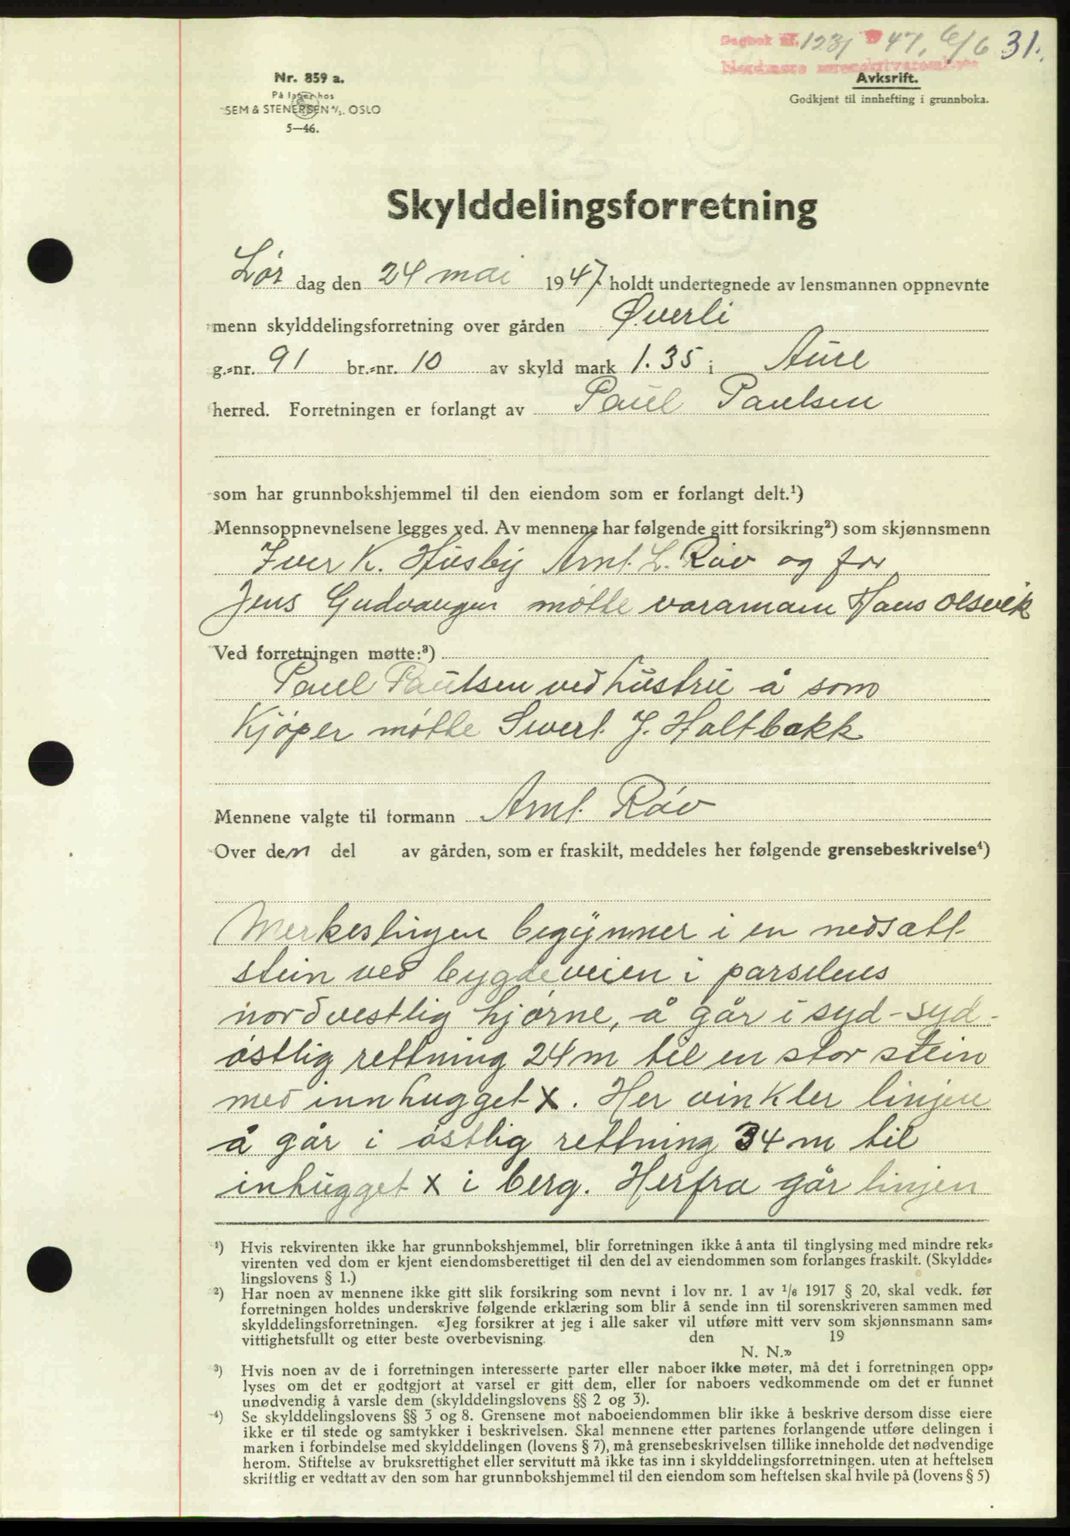 Dagbok nr. 1231 19 47, 6/6 31.
Nordmøre sorenskriverembete
Nr. 859 a.
På lager hos
SEM & STENERSEN A/S. OSLO
5—46.
Avksrift.
Godkjent til innhefting i grunnboka.
Skylddelingsforretning
Lør dag den 24 mai 1947 holdt undertegnede av lensmannen oppnevnte
menn skylddelingsforretning over gården Øverli
g.-nr. 91 br.-nr. 10 av skyld mark 1.35 i Aure
herred. Forretningen er forlangt av Paul Paulsen
som har grunnbokshjemmel til den eiendom som er forlangt delt.¹)
Mennsoppnevnelsene legges ved. Av mennene har følgende gitt forsikring²) som skjønnsmenn
Iver K. Husby Arnt L. Røv og for
Jens Gudvangen møtte varamann Hans Olsvik
Ved forretningen møtte:³)
Paul Paulsen ved hustru å som
Kjøper møtte Sivert J. Holtbakk
Mennene valgte til formann Arnt Røv
Over den del av gården, som er fraskilt, meddeles her følgende grensebeskrivelse⁴)
Merkeslinjen begynner i en nedsatt
stein ved bygdeveien i parselens
nordvestlig hjørne, å går i syd-syd-
østlig rettning 24 m til en stor stein
med innhugget x. Her vinkler linjen
å går i østlig rettning 34 m til
inhugget x i berg. Herfra går linjen
¹) Hvis rekvirenten ikke har grunnbokshjemmel, blir forretningen ikke å anta til tinglysing med mindre rek-
virenten ved dom er kjent eiendomsberettiget til den del av eiendommen som forlanges fraskilt. (Skyldde-
lingslovens § 1.)
²) Har noen av mennene ikke gitt slik forsikring som nevnt i lov nr. 1 av 1/6 1917 § 20, skal vedk. før
forretningen holdes underskrive følgende erklæring som blir å sende inn til sorenskriveren sammen med
skylddelingsforretningen. «Jeg forsikrer at jeg i alle saker vil utføre mitt verv som skjønnsmann sam-
vittighetsfullt og etter beste overbevisning. den 19
N. N.»
³) Hvis noen av de i forretningen interesserte parter eller naboer ikke møter, må det i forretningen opp-
lyses om det er godtgjort at varsel er gitt dem, eller for naboers vedkommende om det er funnet
unødvendig å varsle dem (skylddelingslovens §§ 2 og 3).
⁴) Se skylddelingslovens §§ 3 og 8. Grensene mot naboeiendommen blir ikke å beskrive dersom disse eiere
ikke er til stede og samtykker i beskrivelsen. Skal mennene etter partenes forlangende utføre delingen i
marken i forbindelse med skylddelingen (lovens § 7), må grensebeskrivelsen tillike inneholde det nødvendige
herom. Stiftelse av bruksrettighet eller servitutt må ikke tas inn i skylddelingsforretningen. uten at heftelsen
skriftlig er vedtatt av den som har grunnbokshjemmel til den eiendom som heftelsen skal hvile på (lovens § 5)